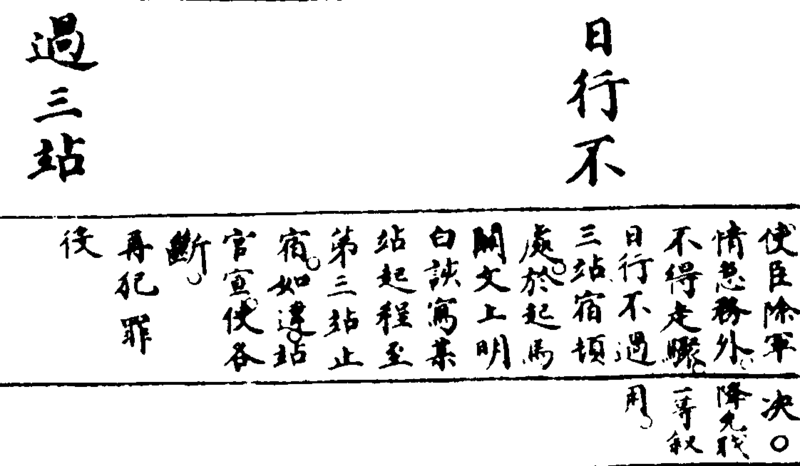 日行不
過三站
使臣除軍
情急務外
不得走驟
日行不過
三站宿頓
處於起馬
關文上明
白該寫某
站起程至
第三站止
宿如違站
官宣使各
斷
再犯罪
役
决○
降先職
一等叙
用